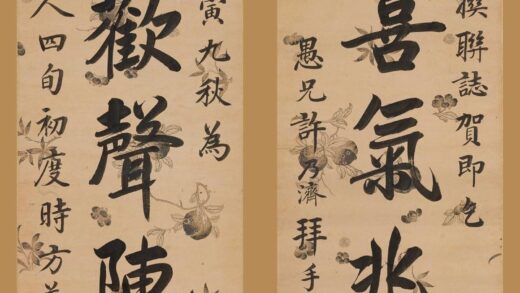 撰聯誌賀即乞
喜氣兆
愚兄許乃濟拜手
寅九秋為
歡聲陳
人四旬初度時方